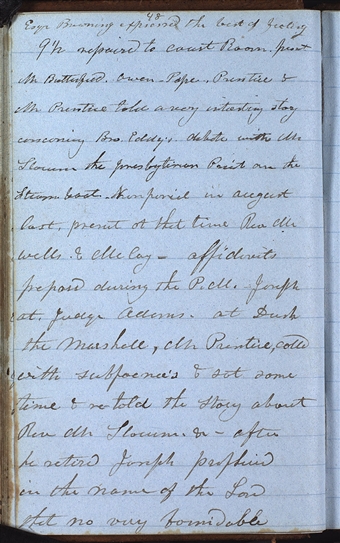 48
Esqr Browning expressed the best of feeling
9½ repaired to court Room. prest
Mr Butterfield. Owen - Pope. Prentice &
Mr Prentice told a very intersting story
concerning Bro. Eddy's. debate with Mr
Slocum the Presbyterian Priest on the
Steam boat. Nonpariel in august
last, present at that time Rev Mr
wells. & McCoy — affidavits
prepared during the P.M. Joseph
at. Judge Adams. at Dusk
the Marshall, Mr Prentice, called
with subpoenie's & sat some
time & re told the story about
Rev Mr Slocum. &c — after
he retired Joseph prophsied
in the name of the Lord
that no very formidable